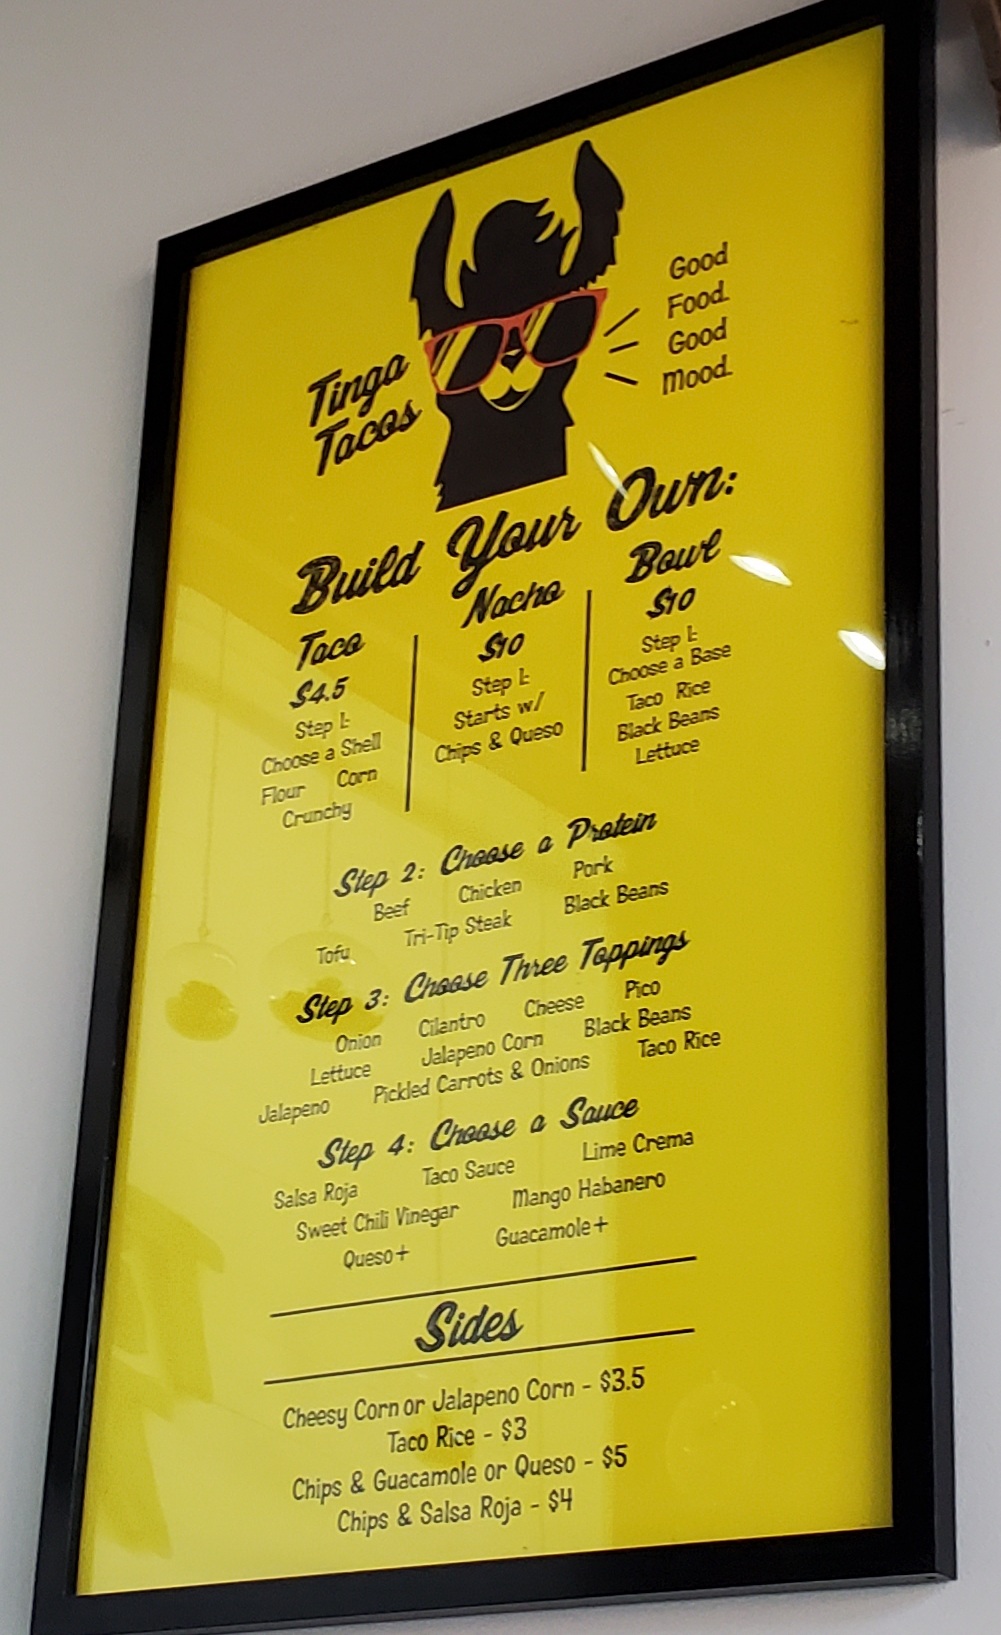 Tinga
Tacos
Good
Food.
Good
Mood.
Build Your Own:
Taco
$4.5
Step 1:
Choose a Shell
Flour Corn
Crunchy
Nacho
$10
Step 1:
Starts w/
Chips & Queso
Bowl
$10
Step 1:
Choose a Base
Taco Rice
Black Beans
Lettuce
Step 2: Choose a Protein
Beef Chicken Pork
Tofu Tri-Tip Steak Black Beans
Step 3: Choose Three Toppings
Onion Cilantro Cheese Pico
Lettuce Jalapeno Corn Black Beans
Jalapeno Pickled Carrots & Onions Taco Rice
Step 4: Choose a Sauce
Salsa Roja Taco Sauce Lime Crema
Sweet Chili Vinegar Mango Habanero
Queso+ Guacamole+
Sides
Cheesy Corn or Jalapeno Corn - $3.5
Taco Rice - $3
Chips & Guacamole or Queso - $5
Chips & Salsa Roja - $4